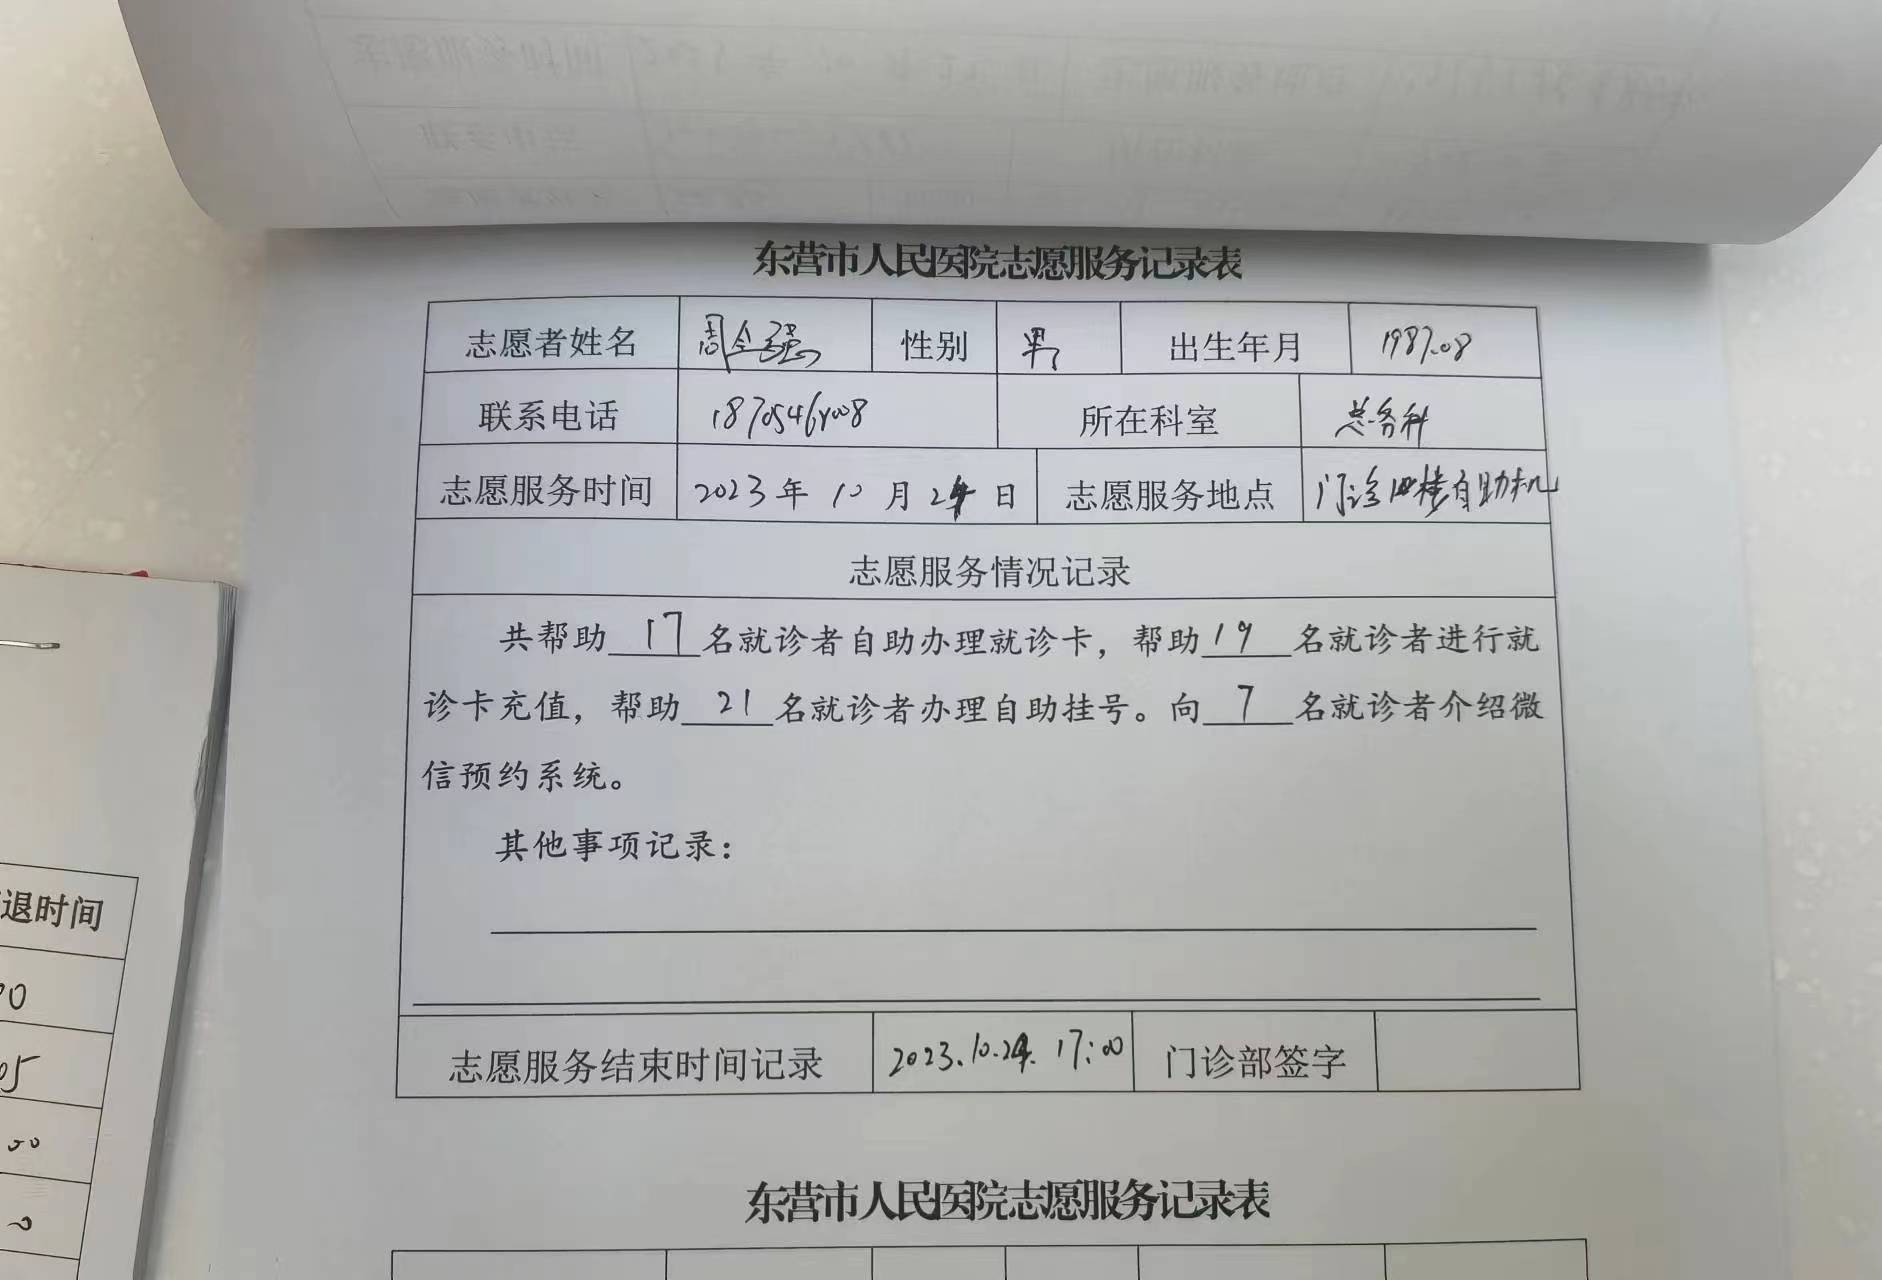 东营市人民医院志愿服务记录表
志愿者姓名 周全强 性别 男 出生年月 1987.08
联系电话 所在科室 总务科
志愿服务时间 2023年 10 月 24 日 志愿服务地点 门诊四楼自助机
志愿服务情况记录
共帮助 17 名就诊者自助办理就诊卡，帮助 19 名就诊者进行就
诊卡充值，帮助 21 名就诊者办理自助挂号。向 7 名就诊者介绍微
信预约系统。
其他事项记录：
志愿服务结束时间记录 2023.10.24. 17:00 门诊部签字
东营市人民医院志愿服务记录表
退时间